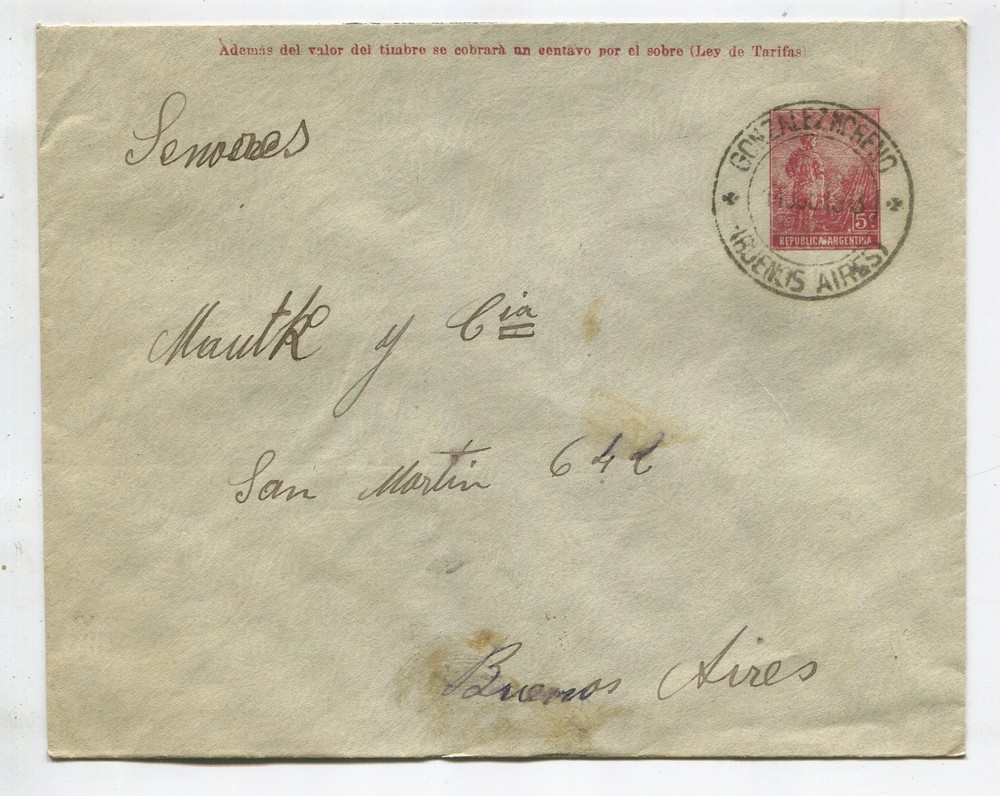 Además del valor del timbre se cobrará un centavo por el sobre (Ley de Tarifas)
Senores
GONZALEZ MORENO
5c
REPUBLICA ARGENTINA
(BUENOS AIRES)
Mautk y Cia
San Martin 642
Buenos Aires